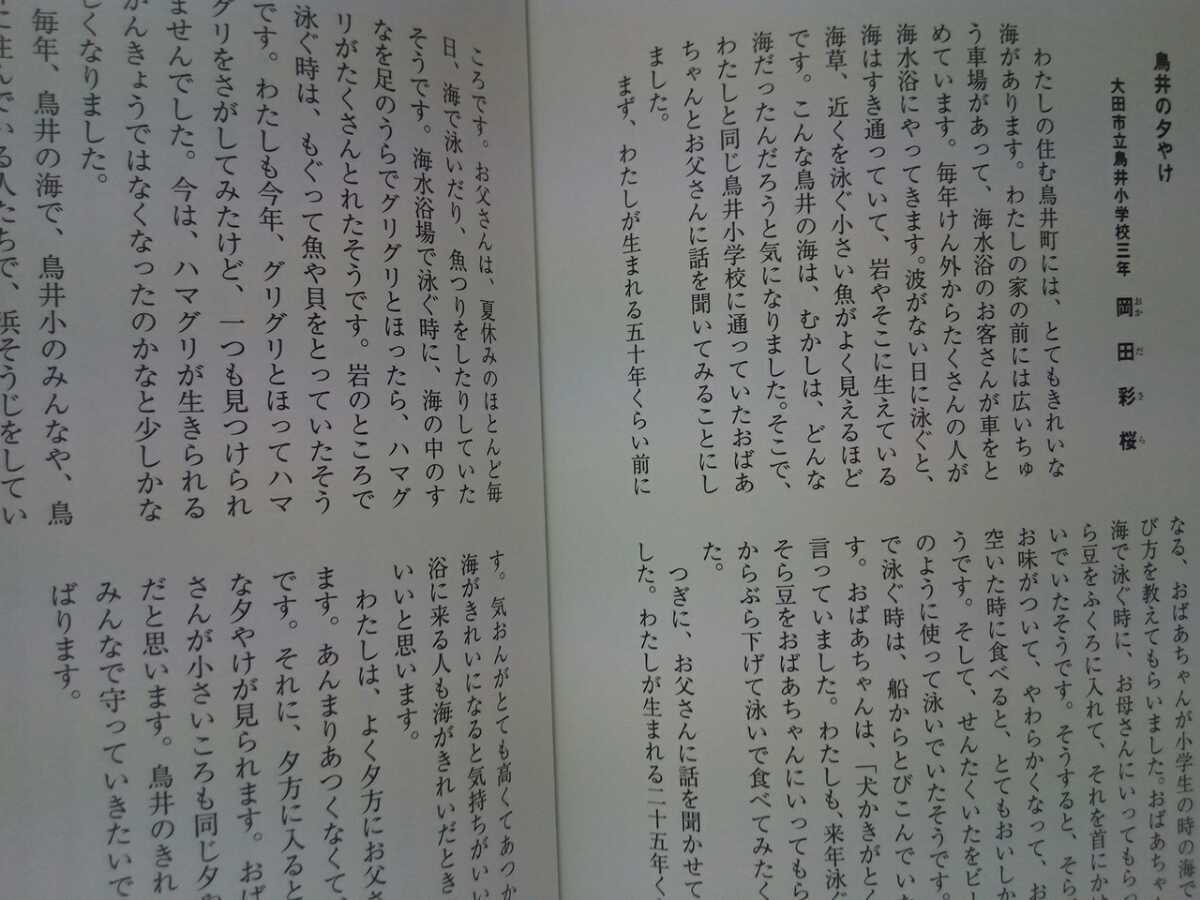 鳥井の夕やけ
大田市立鳥井小学校三年 岡田彩桜
おかださら
わたしの住む鳥井町には、とてもきれいな
海があります。わたしの家の前には広いちゅ
う車場があって、海水浴のお客さんが車をと
めています。毎年けん外からたくさんの人が
海水浴にやってきます。波がない日に泳ぐと、
海はすき通っていて、岩やそこに生えている
海草、近くを泳ぐ小さい魚がよく見えるほど
です。こんな鳥井の海は、むかしは、どんな
海だったんだろうと気になりました。そこで、
わたしと同じ鳥井小学校に通っていたおばあ
ちゃんとお父さんに話を聞いてみることにし
ました。
まず、わたしが生まれる五十年くらい前に
なる、おばあちゃんが小学生の時の海で
び方を教えてもらいました。おばあちゃ
海で泳ぐ時に、お母さんにいってもらっ
ら豆をふくろに入れて、それを首にか
いでいたそうです。そうすると、そら
お味がついて、やわらかくなって、お
空いた時に食べると、とてもおいしか
うです。そして、せんたくいたをビー
のように使って泳いでいたそうです。
で泳ぐ時は、船からとびこんでい
す。おばあちゃんは、「犬かきがとく
言っていました。わたしも、来年泳ぐ
そら豆をおばあちゃんにいってもら
からぶら下げて泳いで食べてみたく
た。
つぎに、お父さんに話を聞かせて
した。わたしが生まれる二十五年く
ころです。お父さんは、夏休みのほとんど毎
日、海で泳いだり、魚つりをしたりしていた
そうです。海水浴場で泳ぐ時に、海の中のす
なを足のうらでグリグリとほったら、ハマグ
リがたくさんとれたそうです。岩のところで
泳ぐ時は、もぐって魚や貝をとっていたそう
です。わたしも今年、グリグリとほってハマ
グリをさがしてみたけど、一つも見つけられ
ませんでした。今は、ハマグリが生きられる
かんきょうではなくなったのかなと少しかな
しくなりました。
毎年、鳥井の海で、鳥井小のみんなや、鳥
に住んでいる人たちで、浜そうじをしてい
す。気おんがとても高くてあつか
海がきれいになると気持ちがいい
浴に来る人も海がきれいだとき
いいと思います。
わたしは、よく夕方にお父さ
ます。あんまりあつくなくて、
です。それに、夕方に入ると
な夕やけが見られます。おば
さんが小さいころも同じ夕や
だと思います。鳥井のきれ
みんなで守っていきたいで
ばります。